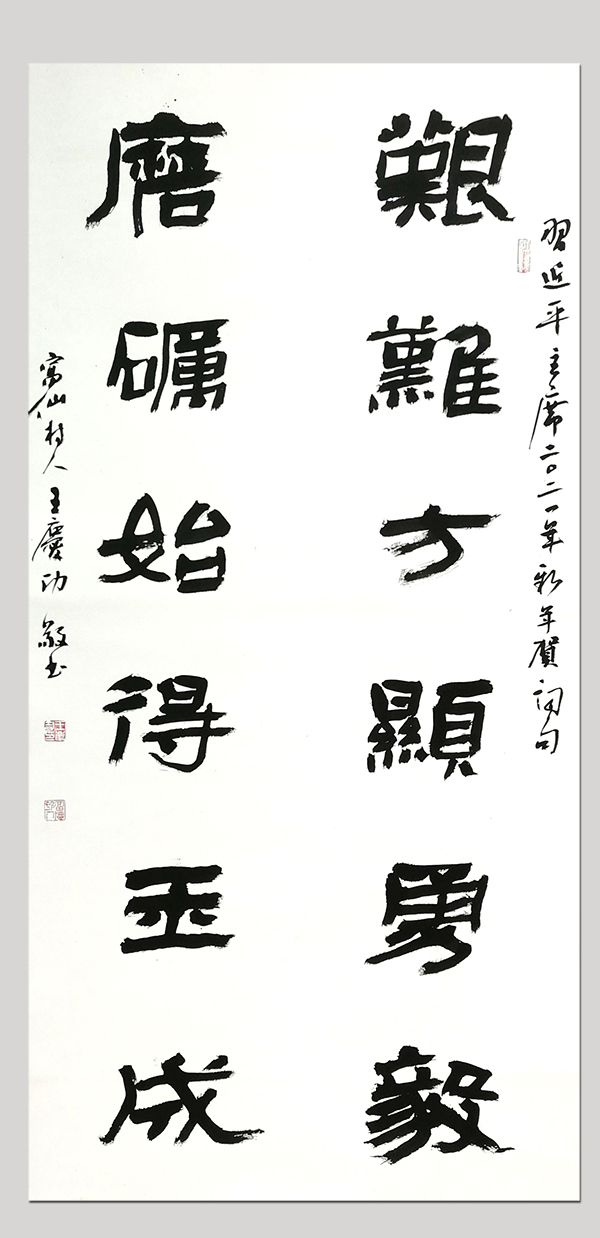 習近平主席二〇二一年新年賀詞句
艱難方顯勇毅
磨礪始得玉成
仙村人王慶功敬书